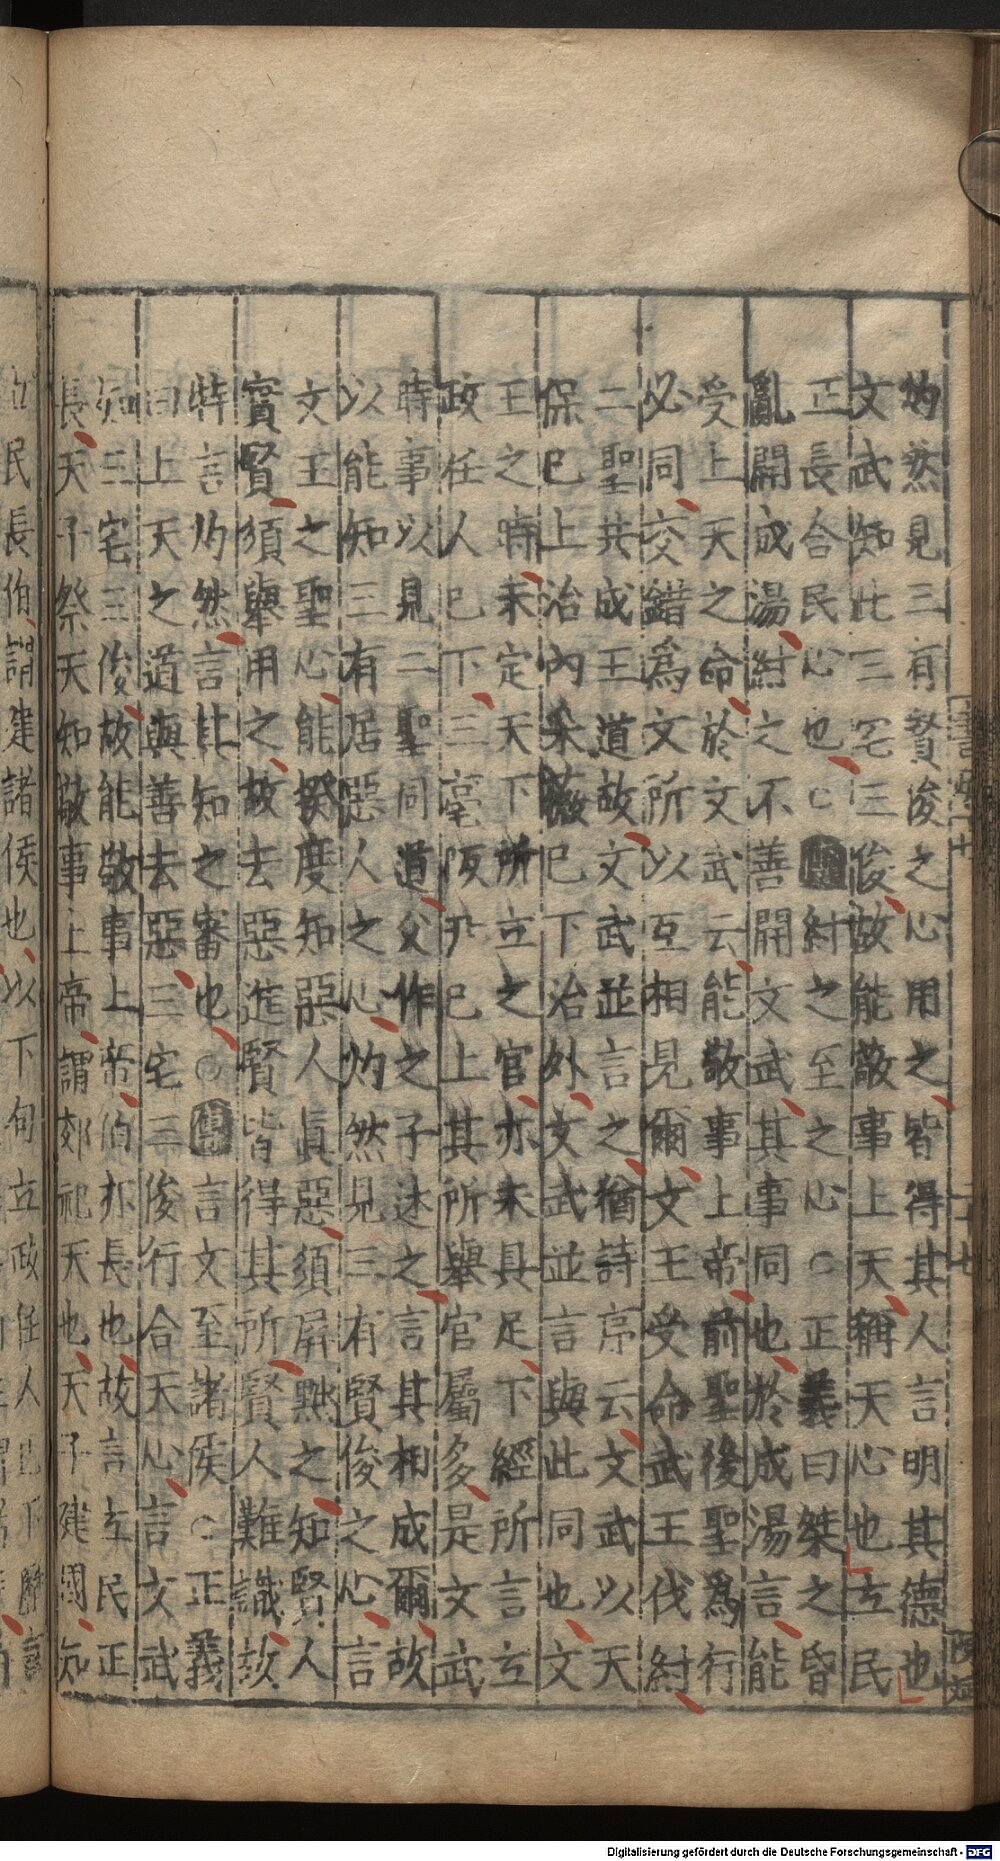 灼然見三有賢俊之心用之皆得其人言明其德也
文武知此三宅三俊故能敬事上天稱天心也立民
正長合民心也○疏紂之至之心○正義曰桀之昏
亂開成湯紂之不善開文武其事同也於成湯言能
受上天之命於文武云能敬事上帝前聖後聖爲行
必同交錯爲文所以互相見爾文王受命武王伐紂
二聖共成王道故文武並言之猶詩序云文武以天
保已上治內采薇已下治外文武並言與此同也文
王之時未定天下所立之官亦未具足下經所言立
政任人已下三亳阪尹已上其所舉官屬多是文武
時事以見二聖同道父作之子述之言其相成爾故
以能知三有居惡人之心灼然見三有賢俊之心言
文王之聖心能揆度知惡人眞惡須屏黜之知賢人
實賢須舉用之故去惡進賢皆得其所賢人難識故
特言灼然言其知之審也○傳言文至諸侯○正義
曰上天之道與善去惡三宅三俊行合天心言文武
知三宅三俊故能敬事上帝伯亦長也故言立民正
長天子祭天知敬事上帝謂郊祀天也天子建國知
立民長伯謂建諸侯也以下句立政任人已下
Digitalisierung gefördert durch die Deutsche Forschungsgemeinschaft - DFG